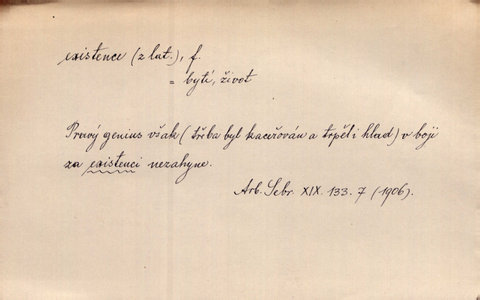 existence (z lat.), f.
= bytí, život
Pravý genius však (třba byl kaceřován a trpěl i hlad) v boji
za existenci nezahyne.
Arb. Sebr. XIX. 133. 7 (1906).